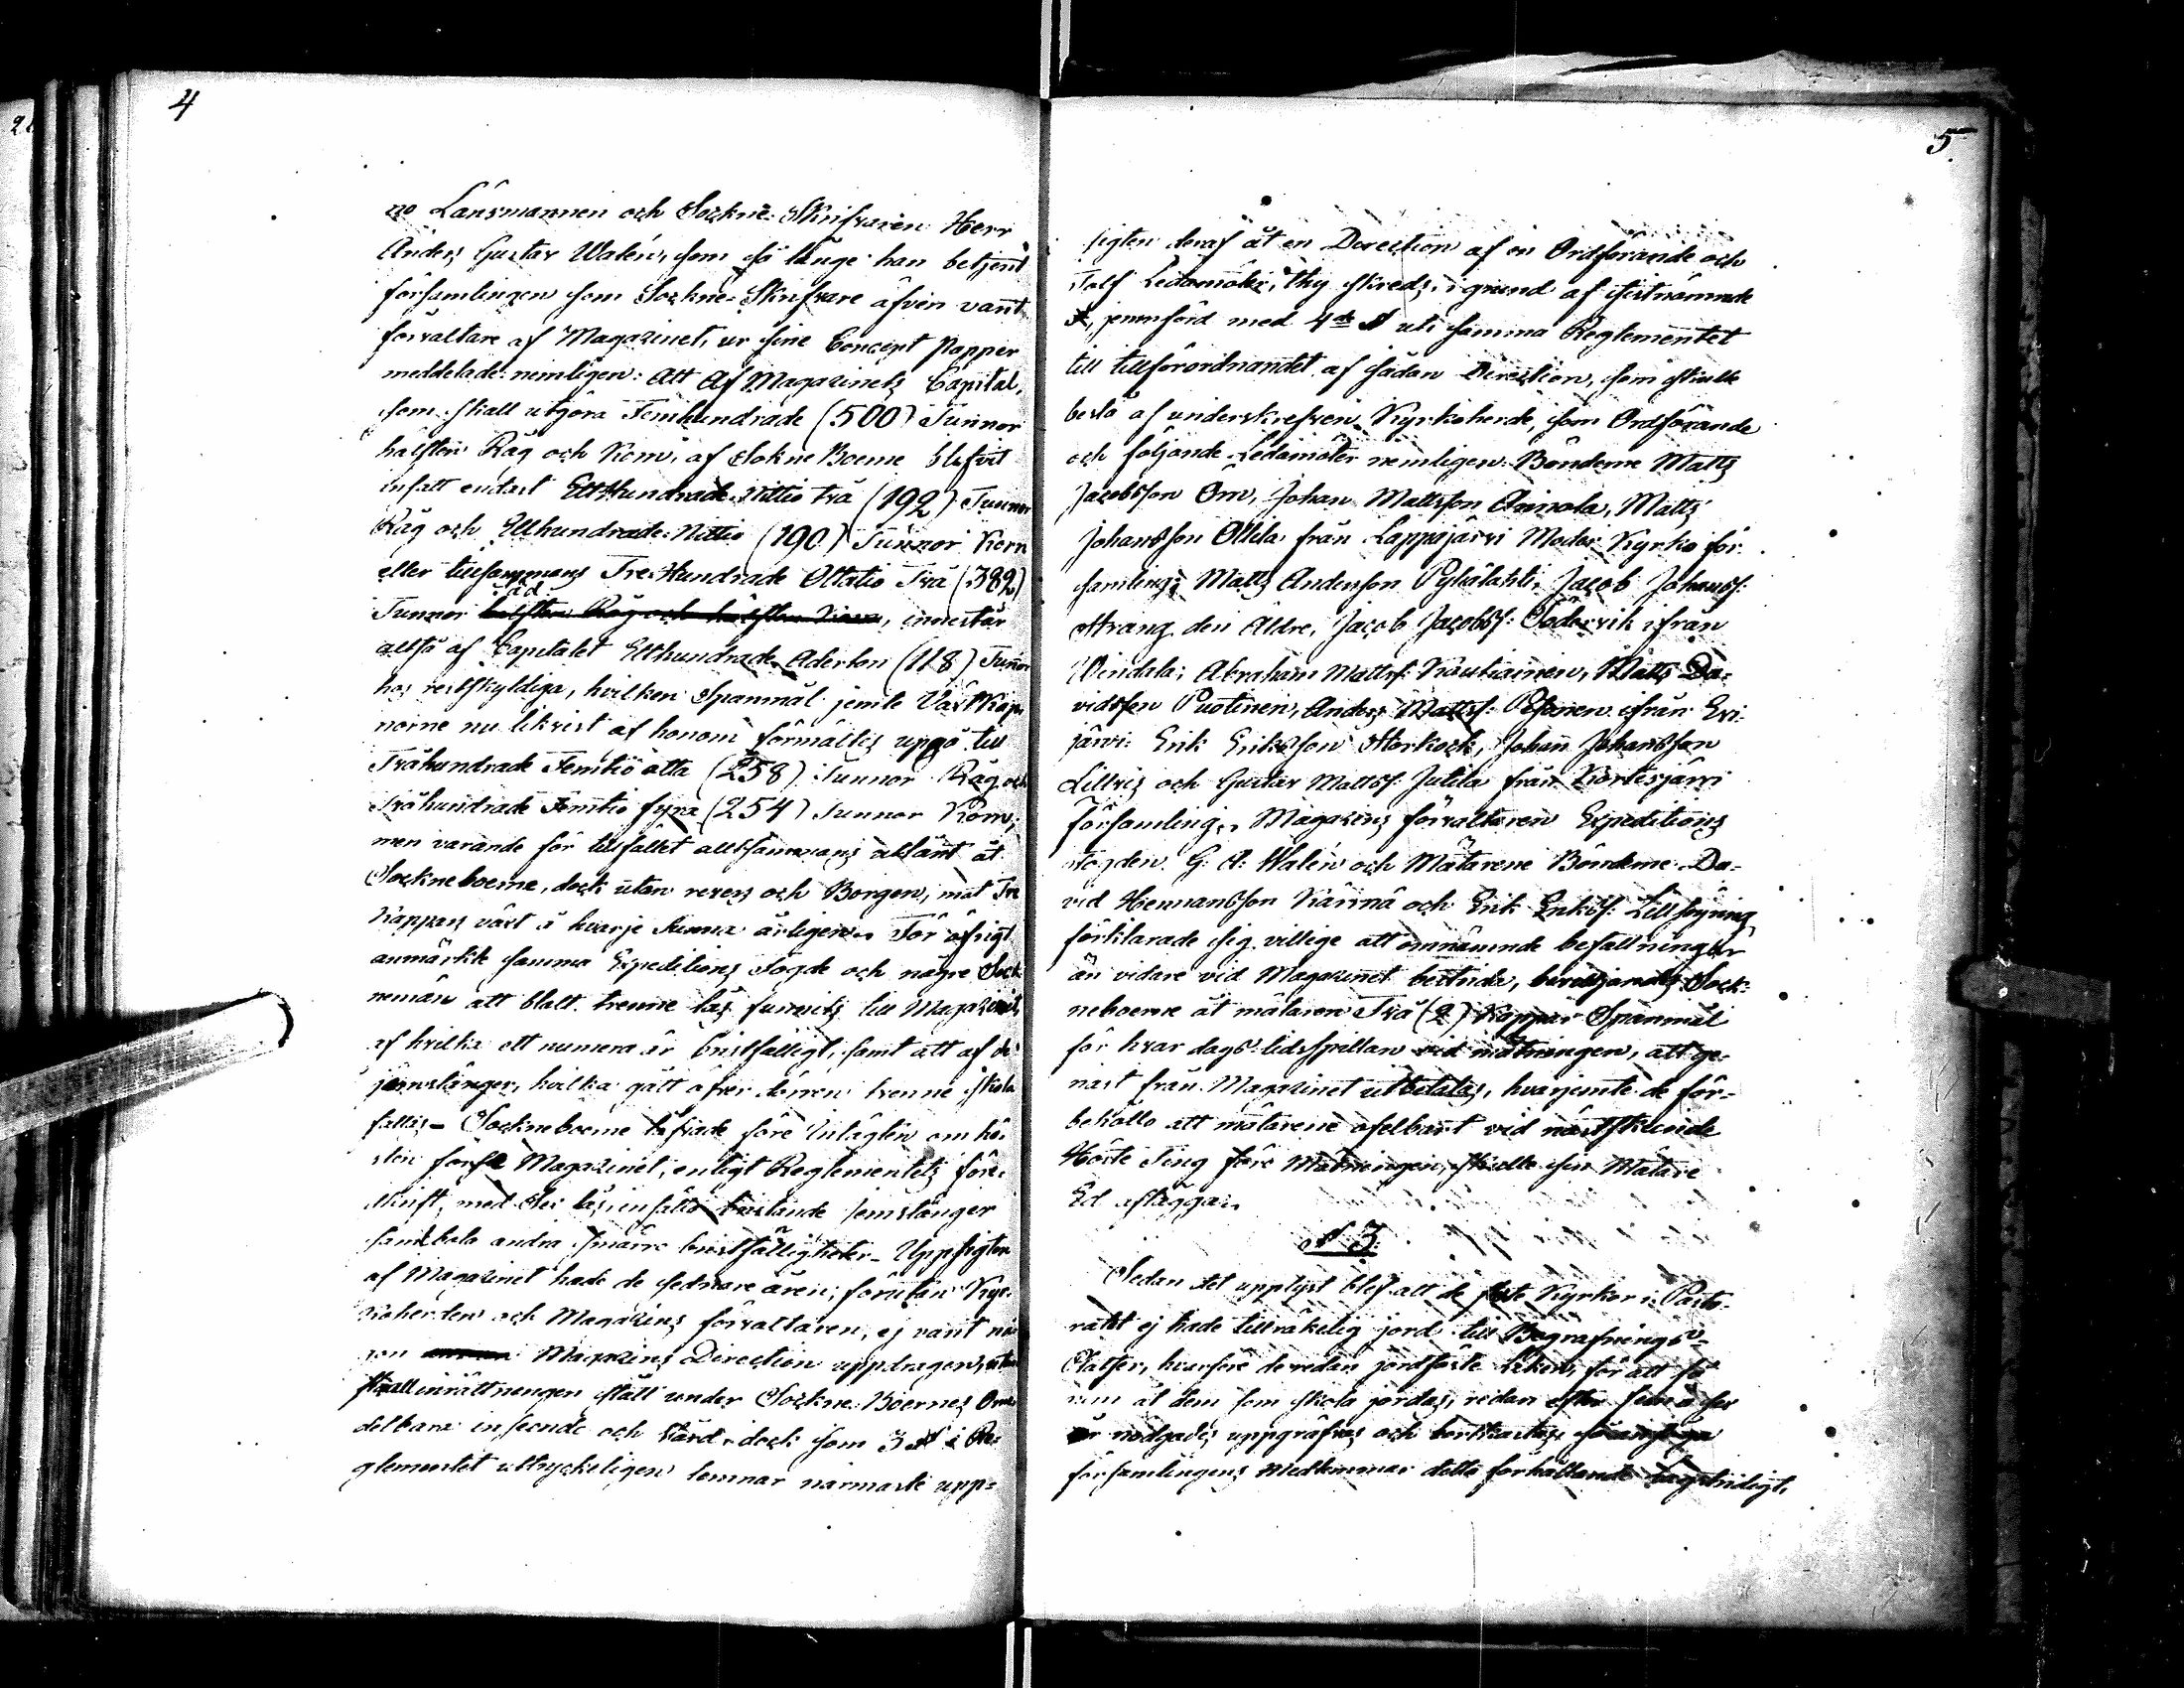 4
no Länsmannen och Sockne Skrifvaren Herr
Anders Gustav Walén, som så länge han betjent
församlingen som Sockne-Skrifvare äfven varit
förvaltare af Magazinet, ur sine Concept papper
meddelade: nemligen: Att Af Magazinets Capital,
som skall utgöra Femhundrade (500) Tunnor
hälften Råg och Korn, af Sokne Boerne blifvit
insatt endast EttHundrade Nittio två (192) Tunnor
Råg och Etthundrade Nittio (190) Tunnor Korn
eller tillsammans Tre Hundrade Ottatio Två (382)
Tunnor hälften Råg och hälften Korn, innestår
altså af Capitalet Etthundrade Aderton (118) Tunnor
hos restskyldiga, hvilken Spanmål jemte Växt Kap
norne nu likvist af honom förmältes uppgå till
Tvåhundrade Femtio åtta (258) Tunnor Råg och
Tvåhundrade Femtio fyra (254) Tunnor Korn,
men varande för tillfället alltsammans utlånt åt
Sockneboerne, dock utan revers och Borgen, mot Tre
Kappars växt å hvarje Tunna årligen. För öfrigt
anmärkte samma Expeditions Fogde och någre Sock
nemän att blott trenne lås funnits till Magazinet,
af hvilka ett numera är bristfälligt, samt att af de
jernstänger, hvilka gått öfver dörren trenne skola
fattas – Sockneboerne lofvade före Inlagten om hö-
sten förse Magazinet, enligt Reglementets före-
skrift, med lås, insätta bristande jernstänger
samt bota andra smärre bristfälligheter – Uppsigten
af Magazinet hade de sednare åren, förutan Kyr-
koherden och Magazins förvaltaren, ej varit nå
gon Magazins Direction uppdragen, utan
inrättningen stått under Sockne Boernes Ome-
delbara inseende och Vård, dock som 3 § i Re-
glementet uttryckeligen lemnar närmaste upp-
5
sigten deraf åt en Direction af en Ordförande och
Tolf Ledamöter, thy skreds i grund af sistnämnde
§, jemnförd med 4de § uti samma Reglementet
till tillförordnandet af sådan Direction, som skulle
bestå af underskrefven Kyrkoherde, som Ordförande
och följande Ledamöter nemligen Bönderne Matts
Jacobsson Öm, Johan Mattsson Annola, Matts
Johansson Ollila från Lappajärvi Moder Kyrko för-
samling; Matts Andersson Pyhälahti, Jacob Johanss:
Strang den Äldre, Jacob Jacobss: Södervik ifrån
Windala; Abraham Mattss: Rautiainen, Matts Da-
vidsson Puotinen, Anders Mattss: Pesonen ifrån Evi-
järvi: Erik Eriksson Storkock, Johan Johansson
Lillvis och Gustav Mattss: Jutila från Kortesjärvi
Församling. Magazins förvaltaren Expeditions
Fogden G: A: Walén och Mätarene Bönderne Da-
vid Hermansson Kärnä och Erik Erikss:
förklarade sig villige att omnämnde befattningar
än vidare vid Magazinet bestrida, Sock-
neboerne åt mätaren Två (2) Kappar Spanmål
för hvar dags tidsspillan vid mätningen, att ge-
nast från Magazinet utbetalas, hvarjemte de för-
behöllo att mätarene ofelbart vid näststkunde
Höste Ting före Mätningen, skulle sin Mätare
Ed aflägga.
§ 3.
Sedan det upplyst blef att de fleste Kyrkor i Pasto-
ratet ej hade tillräkelig jord till Begrafnings-
Platser, hvarföre de redan jordfäste Liken, för att få
rum åt dem som skola jordas, redan efter fem à sex
år nödgades uppgräfvas och bortkastas,
församlingens Medlemmar detta förhållande